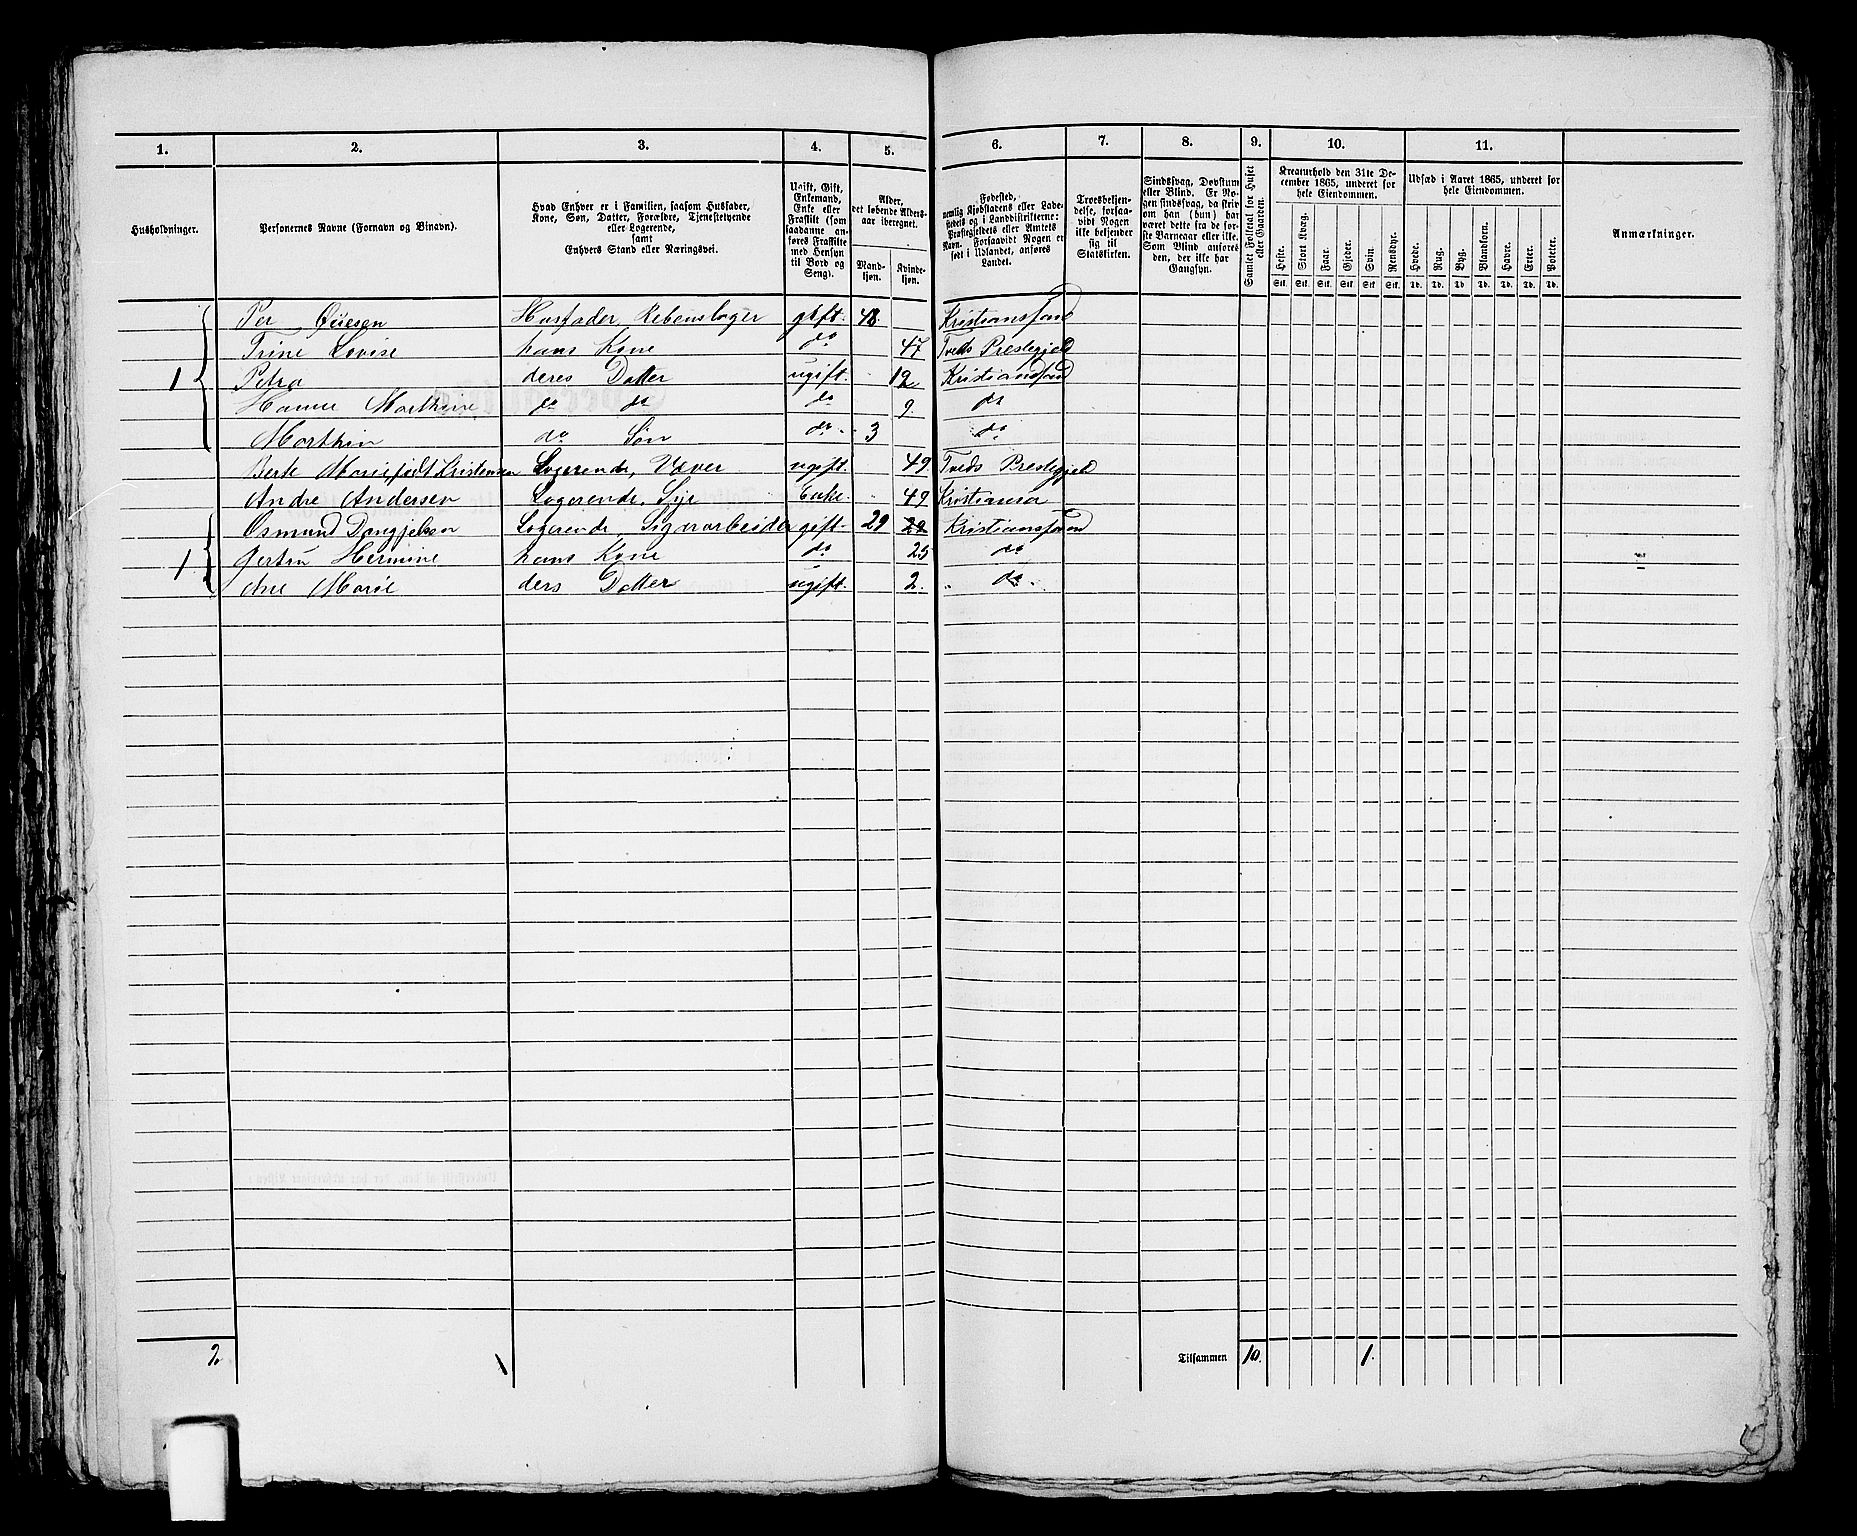 1. 2. 3. 4. 5. 6. 7. 8. 9. 10. 11.
Husholdninger.
Personernes Navne (Fornavn og Binavn).
Hvad Enhver er i Familien, saasom Husfader,
Kone, Søn, Datter, Forældre, Tjenestetyende
eller Logerende,
samt
Enhvers Stand eller Næringsvei.
Ugift, Gift,
Enkemand,
Enke eller
Fraskilt (som
saadanne an-
føres Fraskilte
med Hensyn
til Bord og
Seng).
Alder,
det løbende Alders-
aar iberegnet.
Mand-
kjøn.
Kvinde-
kjøn.
Fødested,
nemlig Kjøbstadens eller Lade-
stedets og i Landdistrikterne:
Præstegjeldets eller Amtets
Navn. Forsaavidt Nogen er
født i Udlandet, anføres
Landet.
Troesbekjen-
delse, forsaa-
vidt Nogen
ikke bekjender
sig til
Statskirken.
Sindssvag, Døvstum
eller Blind. Er No-
gen sindssvag, da skriv
om han (hun) har
været dette fra de før-
ste Barneaar eller ikke.
Som Blind anføres
den, der ikke har
Gangsyn.
Samlet Folketal for Huset
eller Gaarden.
Kreaturhold den 31te De-
cember 1865, underet for
hele Eiendommen.
Heste. Stort Kvæg. Faar. Gjeder. Svin. Rensdyr.
Stk. Stk. Stk. Stk. Stk. Stk.
Udsæd i Aaret 1865, underet for
hele Eiendommen.
Hvede. Rug. Byg. Blandkorn. Havre. Erter. Poteter.
Td. Td. Td. Td. Td. Td. Td.
Anmærkninger.
Per Husfader Rebenslager gift. 48. Kristianssand
Trine Lovise hans Kone do 47 Tveds Prestegjeld
1 Petra deres Datter ugift. 12 Kristianssand
Hanne Marthine do do do 9. do
Marthin do Søn do. 3 do
Berte Marie født Kristensen Logerende, Væver ugift. 49. Tveds Prestegjeld
Andre Andersen Logerende, Sye Enke. 49
Osmund Logerende, Sigararbeider gift. 29 22 Kristianssand
1 Gertru Hermine hans Kone do 25 do
Ane Marie ders Datter ugift. 2. do.
2. Tilsammen 10. 1.